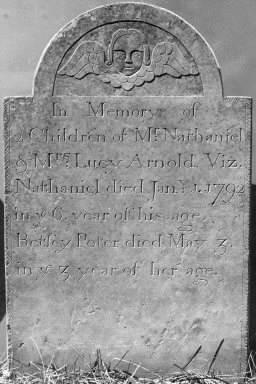 In Memory of
2 Children of Mr. Nathaniel
& Mrs. Lucy Arnold, Viz.
Nathaniel died Jany. 1. 1792
in ye 6. year of his age.
Betsey Poter died May 3.
in ye 3 year of her age.